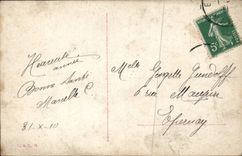 Heureuse
année
Bonne Santé
Marcelle C
31-X-10
Melle Georgette Gundorff
5 rue Maupin
Epernay